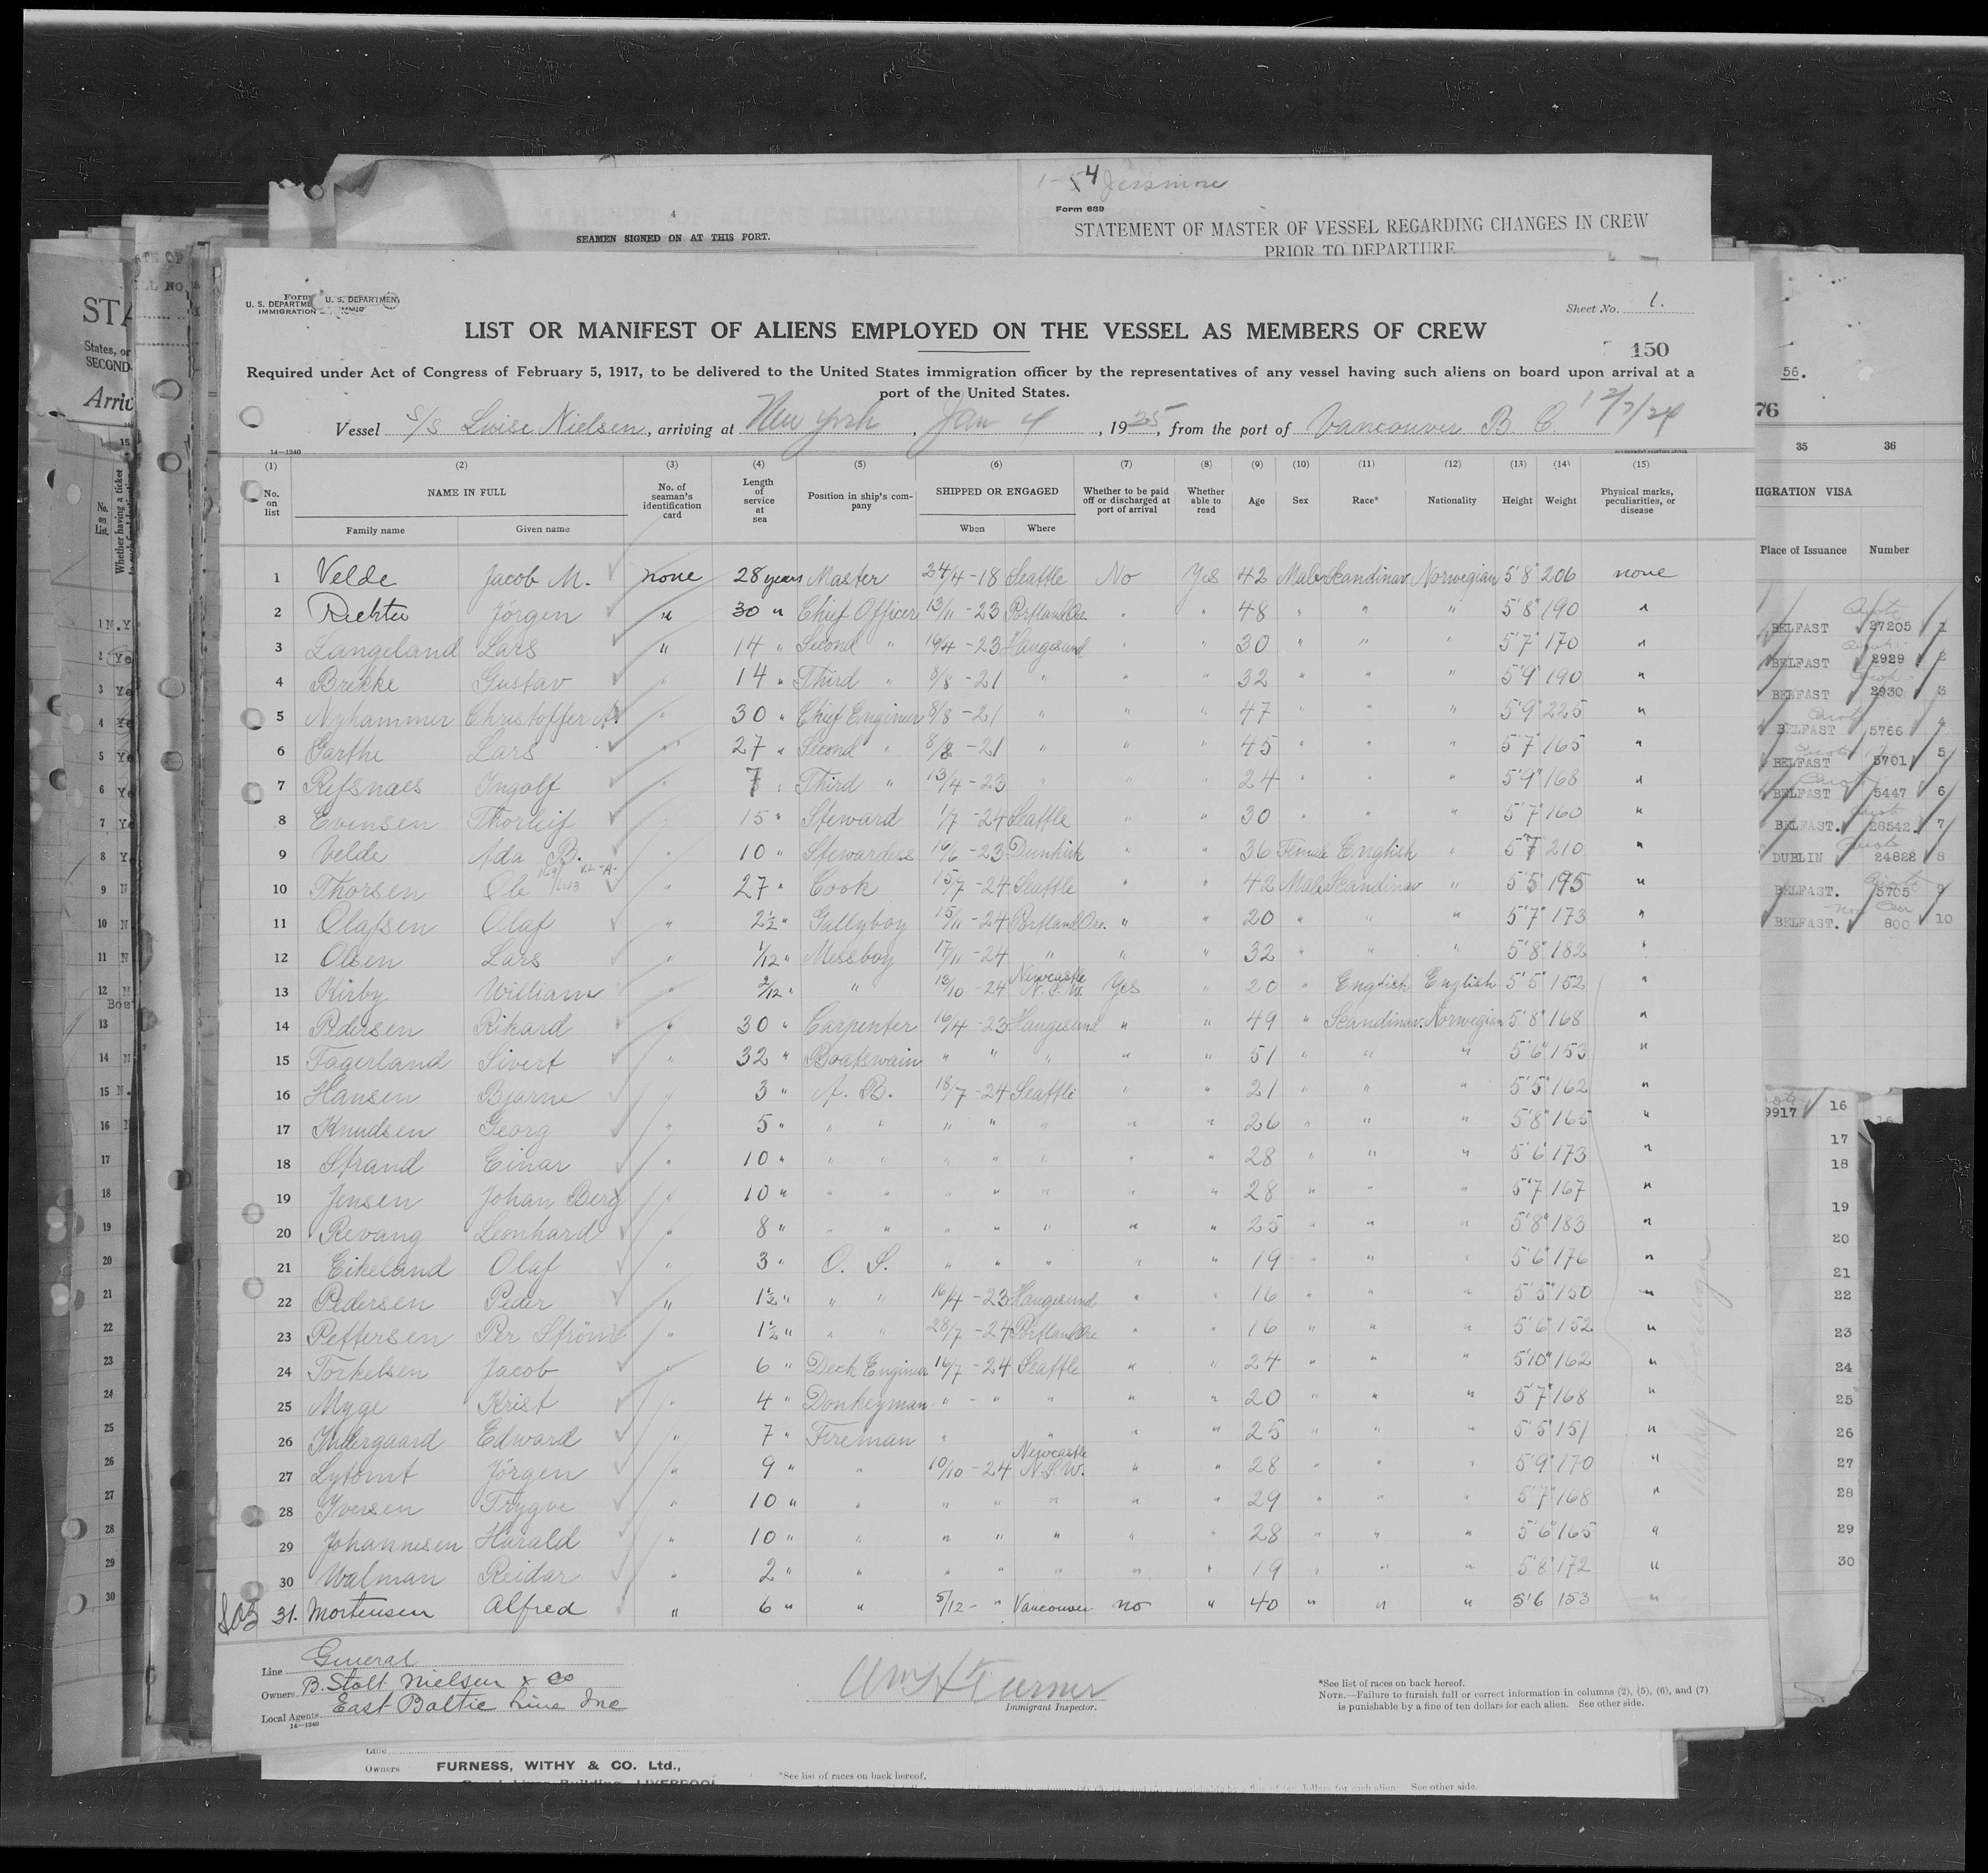 1-54 Jessmore
Form 689
4
SEAMEN SIGNED ON AT THIS PORT.
STATEMENT OF MASTER OF VESSEL REGARDING CHANGES IN CREW
PRIOR TO DEPARTURE
Form
U. S. DEPARTME U. S. DEPARTMEN
IMMIGRATION
Sheet No. 1.
LIST OR MANIFEST OF ALIENS EMPLOYED ON THE VESSEL AS MEMBERS OF CREW
150
Required under Act of Congress of February 5, 1917, to be delivered to the United States immigration officer by the representatives of any vessel having such aliens on board upon arrival at a
port of the United States.
Vessel S/S Luise Nielsen, arriving at New York, Jan 4, 1925, from the port of Vancouver B. C. 12/7/24
14—1240
(1) (2) (3) (4) (5) (6) (7) (8) (9) (10) (11) (12) (13) (14) (15)
No. on list NAME IN FULL No. of seaman's identification card Length of service at sea Position in ship's company SHIPPED OR ENGAGED Whether to be paid off or discharged at port of arrival Whether able to read Age Sex Race* Nationality Height Weight Physical marks, peculiarities, or disease
Family name Given name When Where
1 Velde Jacob M. none 28 years Master 24/4-18 Seattle No Yes 42 Male Scandinav. Norwegian 5'8" 206 none
2 Richter Jörgen " 30 " Chief Officer 13/11-23 Portland Ore. " " 48 " " " 5'8" 190 "
3 Langeland Lars " 14 " Second " 16/4-23 Haugesund " " 30 " " " 5'7" 170 "
4 Brekke Gustav " 14 " Third " 8/8-21 " " " 32 " " " 5'9" 190 "
5 Nyhammer Christoffer A. " 30 " Chief Engineer 8/8-21 " " " 47 " " " 5'9" 225 "
6 Garthe Lars " 27 " Second " 8/8-21 " " " 45 " " " 5'7" 165 "
7 Refsnaes Ingolf " 7 " Third " 13/4-23 " " " 24 " " " 5'9" 168 "
8 Evensen Thorleif " 15 " Steward 1/7-24 Seattle " " 30 " " " 5'7" 160 "
9 Velde Ada B. " 10 " Stewardess 16/6-23 Dunkirk " " 36 Female English " 5'7" 210 "
10 Thorsen Ole " 27 " Cook 15/7-24 Seattle " " 42 Male Scandinav " 5'5" 195 "
11 Olafsen Olaf " 2½ " Gallyboy 15/11-24 Portland Ore. " " 20 " " " 5'7" 173 "
12 Olsen Lars " 1/12 " Messboy 17/11-24 " " " 32 " " " 5'8" 182 "
13 Kirby William " 2/12 " " 13/10-24 Newcastle N.S.W. Yes " 20 " English English 5'5" 152 "
14 Pedersen Rikard " 30 " Carpenter 16/4-23 Haugesund " " 49 " Scandinav. Norwegian 5'8" 168 "
15 Fagerland Sivert " 32 " Boatswain " " " " " 51 " " " 5'6" 153 "
16 Hansen Bjarne " 3 " A. B. 18/7-24 Seattle " " 21 " " " 5'5" 162 "
17 Knudsen Georg " 5 " " " " " " " " 26 " " " 5'8" 165 "
18 Strand Einar " 10 " " " " " " " " 28 " " " 5'6" 173 "
19 Jensen Johan Berg " 10 " " " " " " " " 28 " " " 5'7" 167 "
20 Revang Leonhard " 8 " " " " " " " " 25 " " " 5'8" 183 "
21 Eikeland Olaf " 3 " O. S. " " " " " 19 " " " 5'6" 176 "
22 Pedersen Peder " 1½ " " " 16/4-23 Haugesund " " 16 " " " 5'5" 150 "
23 Pettersen Per Ström " 1½ " " " 28/7-24 Portland Ore " " 16 " " " 5'6" 152 "
24 Torkelsen Jacob " 6 " Deck Engineer 16/7-24 Seattle " " 24 " " " 5'10" 162 "
25 Myge Krist " 4 " Donkeyman " - " " " " 20 " " " 5'7" 168 "
26 Indergaard Edward " 7 " Fireman " " " " 25 " " " 5'5" 151 "
27 Lytomt Jörgen " 9 " " 10/10-24 Newcastle N.S.W. " " 28 " " " 5'9" 170 "
28 Iversen Trygve " 10 " " " " " " " 29 " " " 5'7" 168 "
29 Johannesen Harald " 10 " " " " " " " 28 " " " 5'6" 165 "
30 Walman Reidar " 2 " " " " " " " 19 " " " 5'8" 172 "
31. Mortensen Alfred " 6 " " 5/12- " Vancouver no " 40 " " " 5'6 153 "
Line General
Owners B. Stolt Nielsen & Co
Local Agents East Baltic Line Inc
14—1240
Wm H Turner
Immigrant Inspector.
*See list of races on back hereof.
NOTE.—Failure to furnish full or correct information in columns (2), (5), (6), and (7)
is punishable by a fine of ten dollars for each alien. See other side.
Line
Owners FURNESS, WITHY & CO. Ltd.,
*See list of races on back hereof.
See other side.
STA
States, or
SECOND-
Arriv
No. on List.
Whether having a ticket
56.
76
35 36
MIGRATION VISA
Place of Issuance Number
BELFAST 27205 1
BELFAST 2929 2
BELFAST 2930 3
BELFAST 5766 4
BELFAST 5701 5
BELFAST 5447 6
BELFAST. 28542. 7
DUBLIN 24822 8
BELFAST. 5705 9
BELFAST. 800 10
9917 16
17
18
19
20
21
22
23
24
25
26
27
28
29
30